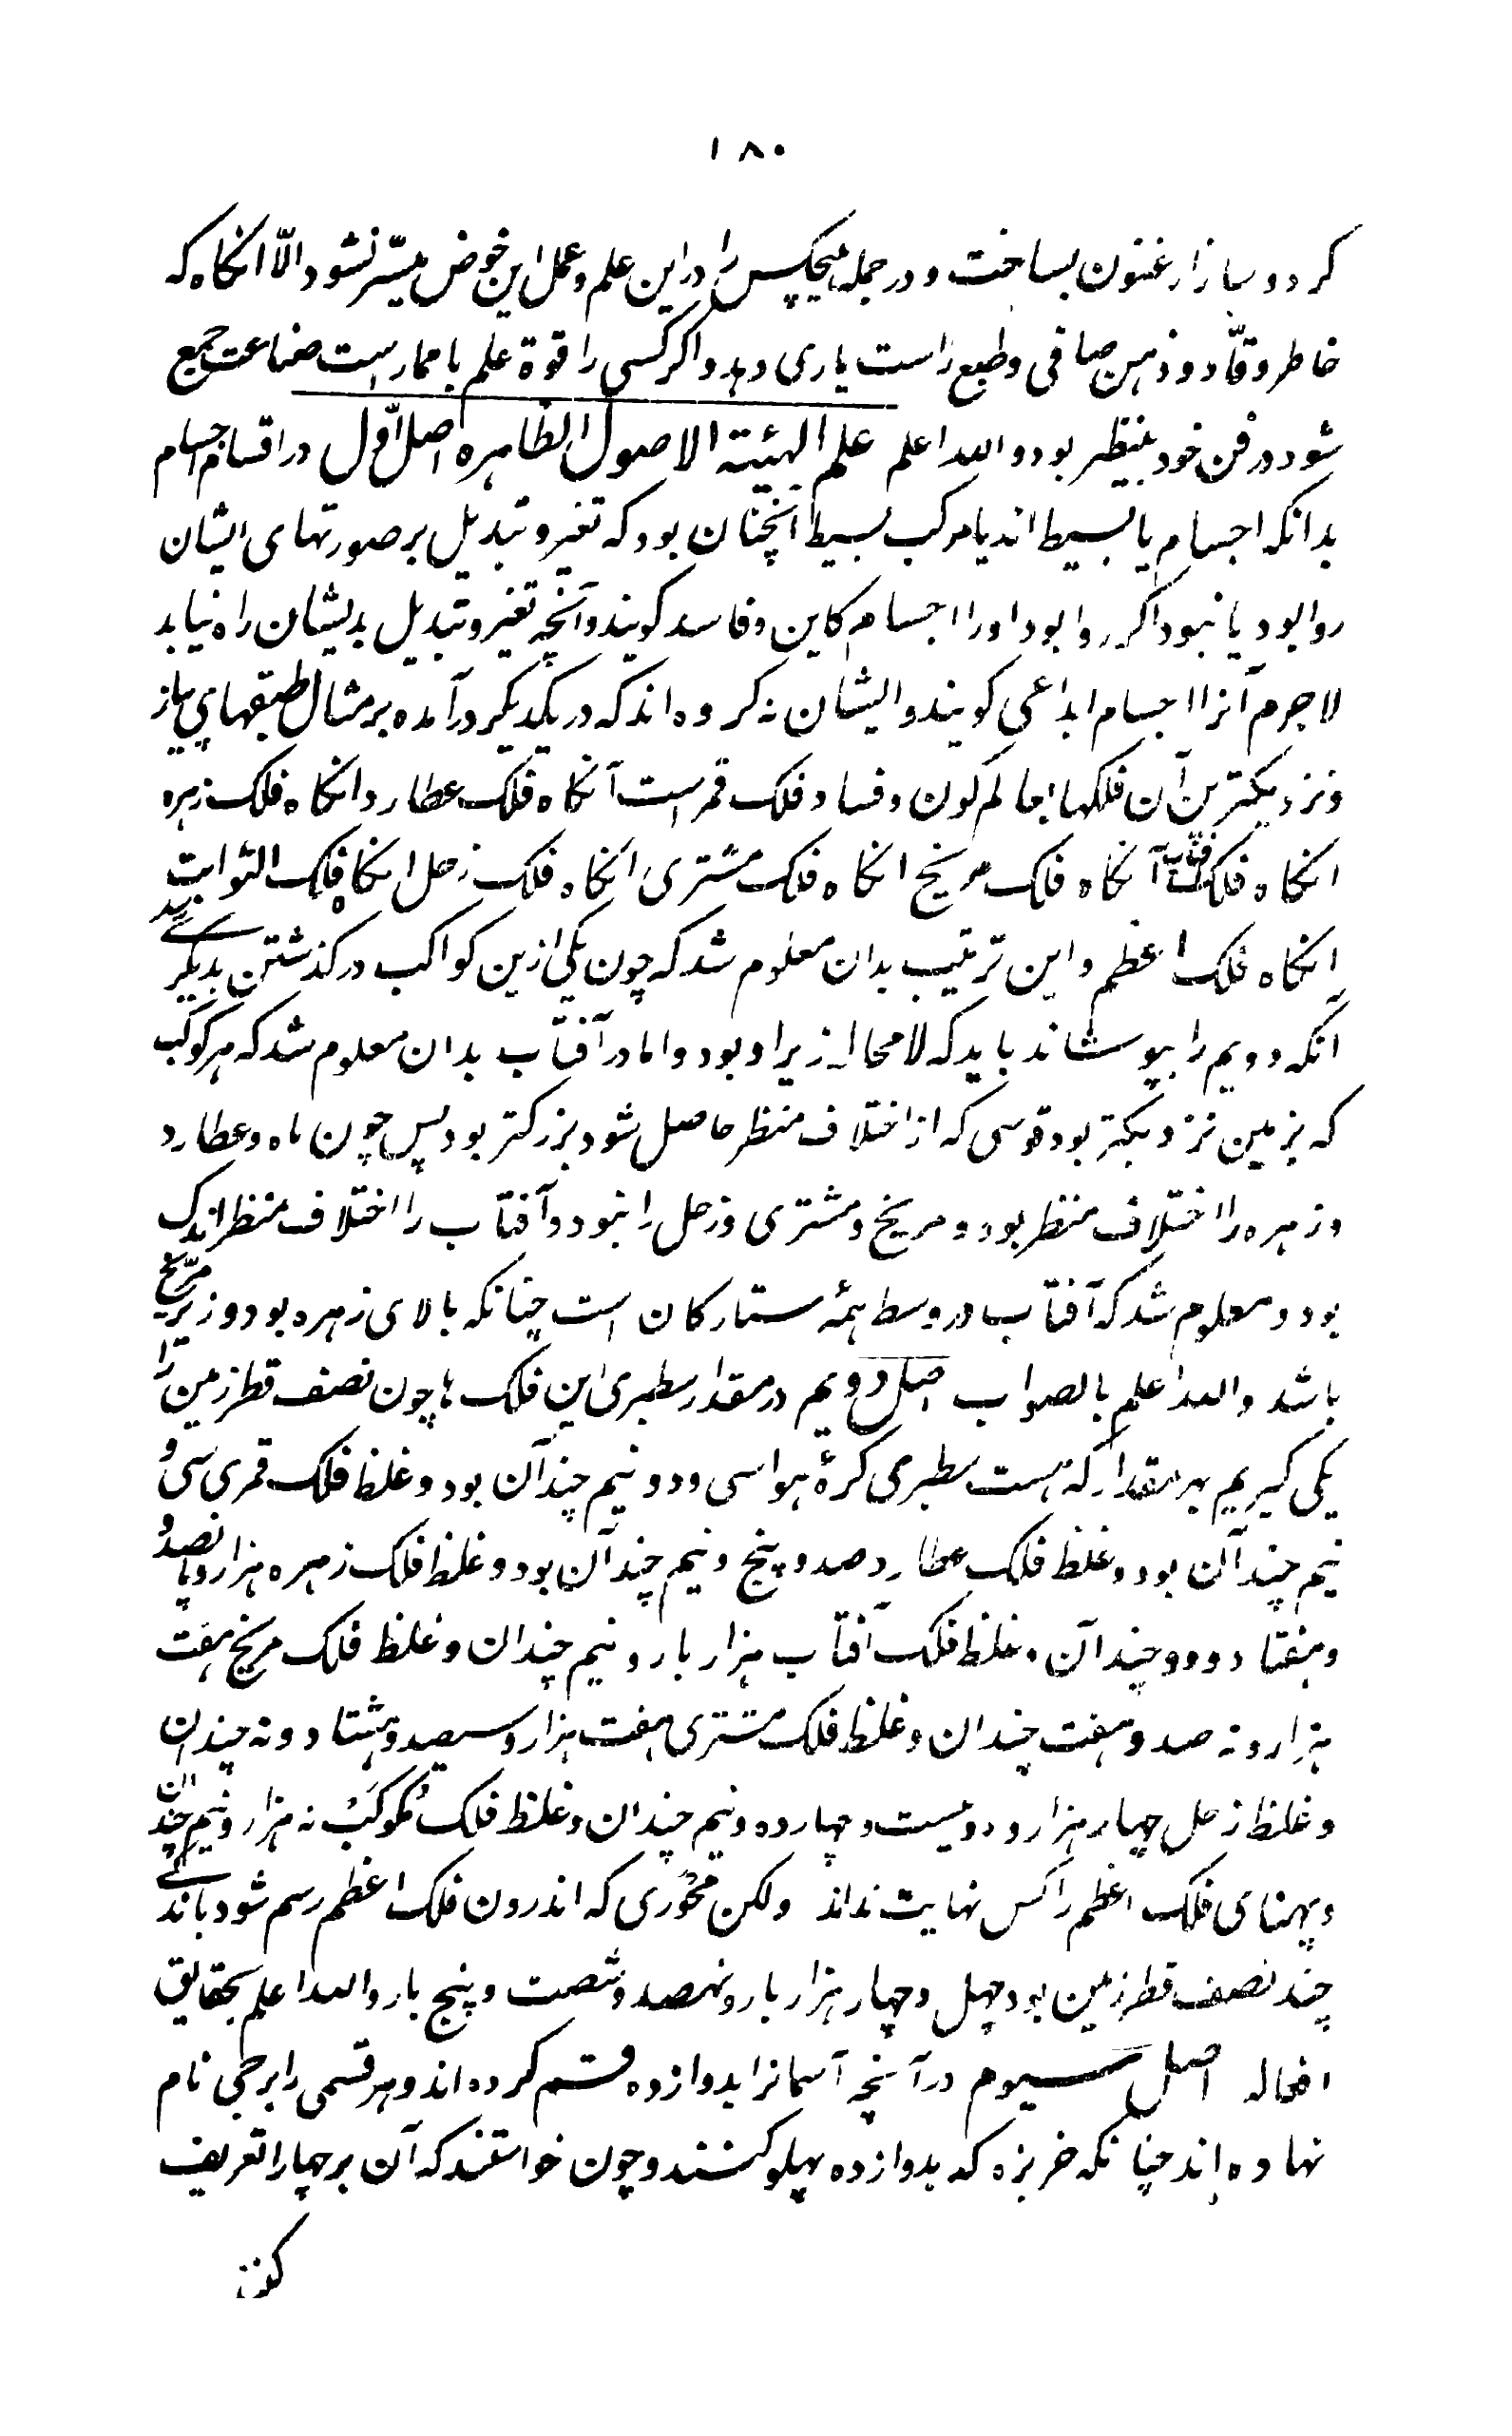 ۱۸۰
کرد و ساز ارغنون بساخت و در جمله هیچکس را در این علم و عمل این خوض میسّر نشود الّا انکاه که
خاطر وقّاد و ذهن صافی و طبع راست یاری دهد و اکر کسی را قوة علم با ممارست صناعت جمع
شود در فن خود بینظیر بود و الله اعلم علم الهیئة الاصول الظاهره اصل اوّل در اقسام اجسام
بدانکه اجسام یا بسیط اند یا مرکب بسیط آنچنان بود که تغیر و تبدیل بر صورتهای ایشان
روا بود یا نبود اکر روا بود او را اجسام کاین و فاسد کویند و آنچه تغیر و تبدیل بدیشان راه نیابد
لاجرم آنرا اجسام ابداعی کویند و ایشان نه کره اند که در یکدیکر درآمده بر مثال طبقهای پیاز
و نزدیکترین آن فلکها بعالم کون و فساد فلک قمر است آنکاه فلک عطارد انکاه فلک زهره
انکاه فلک آفتاب آنکاه فلک مریخ انکاه فلک مشتری انکاه فلک زحل انکاه فلک الثوابت
انکاه فلک اعظم و این ترتیب بدان معلوم شد که چون یکی ازین کواکب در کذشتن بدیکری رسد
آنکه دویم را بپوشاند باید که لامحاله زیر او بود و اما در آفتاب بدان معلوم شد که هر کوکب
که بزمین نزدیکتر بود قوسی که از اختلاف منظر حاصل شود بزرکتر بود پس چون ماه و عطارد
و زهره را اختلاف منظر بود و مریخ و مشتری و زحل را نبود و آفتاب را اختلاف منظر اندک
بود و معلوم شد که آفتاب در وسط همه ستارکان است چنانکه بالای زهره بود و زیر مریخ
باشد و الله اعلم بالصواب اصل دویم در مقدار سطبری این فلک ها چون نصف قطر زمین را
یکی کیریم بهر مقدار که هست سطبری کرهٔ هوا سی و دو نیم چند آن بود و غلظ فلک قمری سی و
نیم چند آن بود و غلظ فلک عطارد صد و پنج و نیم چند آن بود و غلظ فلک زهره هزار و پانصد و
و هفتاد و دو چند آن و غلظ فلک آفتاب هزار بار و نیم چندان و غلظ فلک مریخ هفت
هزار و نه صد و هفت چندان و غلظ فلک مشتری هفت هزار و سیصد و هشتاد و نه چندان
و غلظ زحل چهار هزار و دویست و چهارده و نیم چندان و غلظ فلک مُکوکَب نه هزار و نیم چند ان
و پهنای فلک اعظم را کس نهایت نداند ولکن محوری که اندرون فلک اعظم رسم شود باندکی
چند نصف قطر زمین بود چهل و چهار هزار بار و نهصد و شصت و پنج بار و الله اعلم بحقایق
افعاله اصل سیوم در آنچه آسمانرا بدوازده قسم کرده اند و هر قسمی را برجی نام
نهاده اند چنانکه خربزه که بدوازده پهلو کنند و چون خواستند که آن برجها را تعریف
کنند